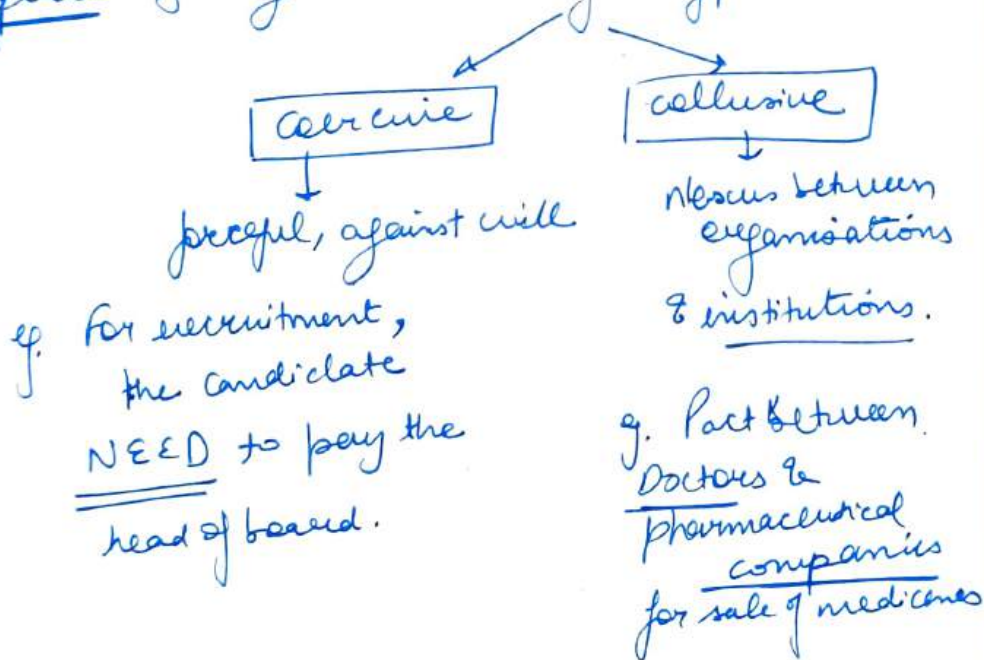 coercive
forceful, against will
eg. For recruitment,
the candidate
NEED to pay the
head of board.
collusive
Nexus between
organisations
& institutions.
eg. Pact between
Doctors &
pharmaceutical
companies
for sale of medicines